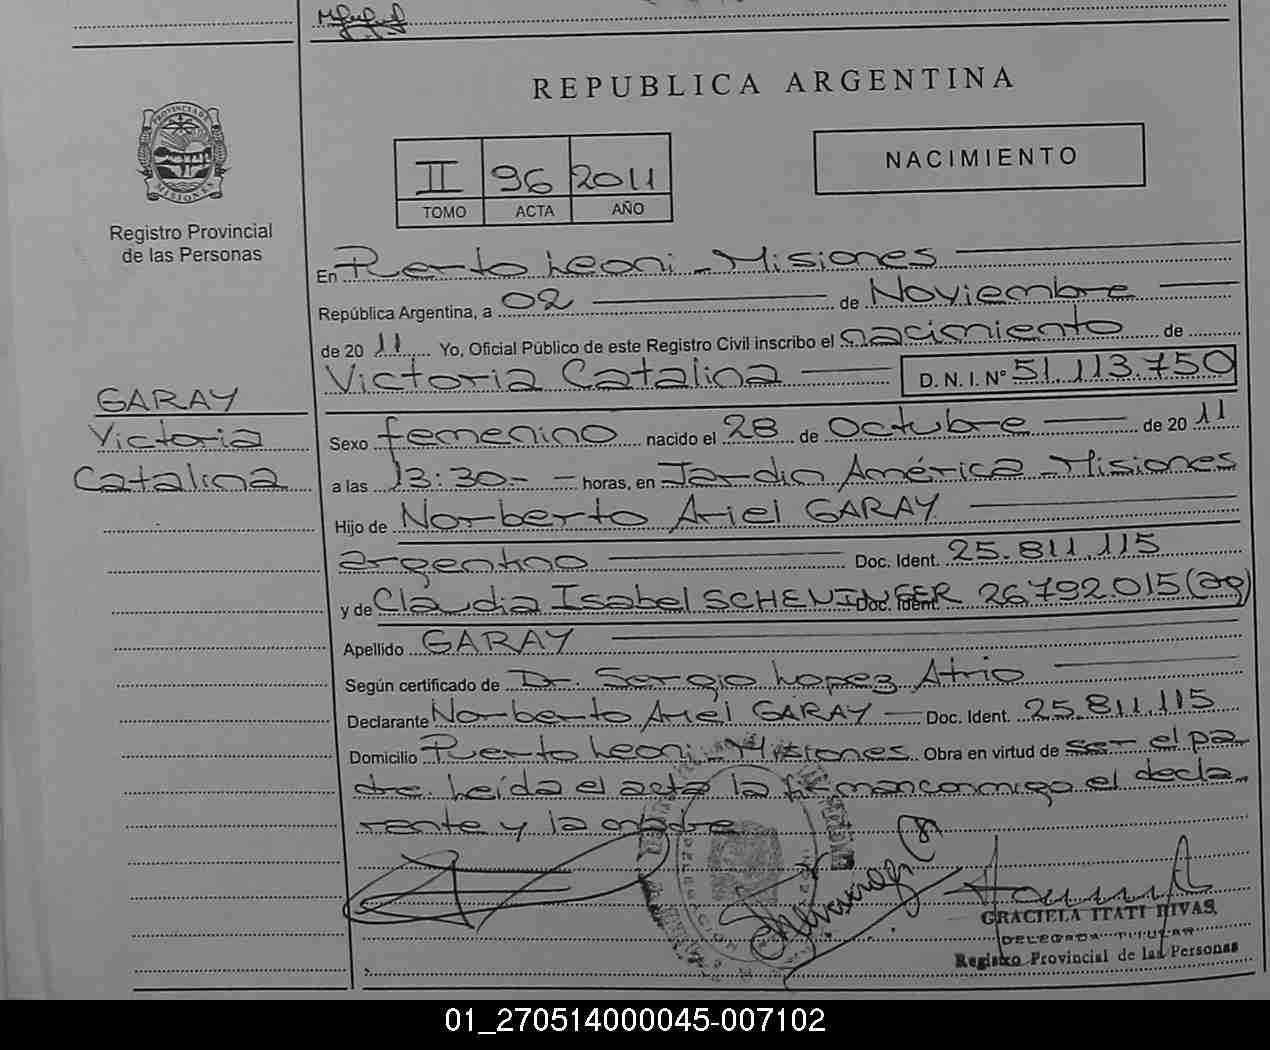 REPUBLICA ARGENTINA
PROVINCIA DE MISIONES
Registro Provincial
de las Personas
II 96 2011
TOMO ACTA AÑO
NACIMIENTO
GARAY
Victoria
Catalina
En Puerto Leoni - Misiones
República Argentina, a 02 de Noviembre
de 2011 Yo, Oficial Público de este Registro Civil inscribo el nacimiento de
Victoria Catalina D. N. I. N° 51.113.750
Sexo femenino nacido el 28 de Octubre de 2011
a las 13:30.- horas, en Jardin América - Misiones
Hijo de Norberto Ariel GARAY
argentino Doc. Ident. 25.811.115
y de Claudia Isabel SCHENINGER Doc. Ident. 26792015 (ag)
Apellido GARAY
Según certificado de Dr. Sergio Lopez Atrio
Declarante Norberto Ariel GARAY Doc. Ident. 25.811.115
Domicilio Puerto Leoni - Misiones. Obra en virtud de ser el pa
dre. Leída el acta la firman conmigo el decla
rante y la madre
GRACIELA ITATI RIVAS
DELEGADA TITULAR
Registro Provincial de las Personas
01_270514000045-007102